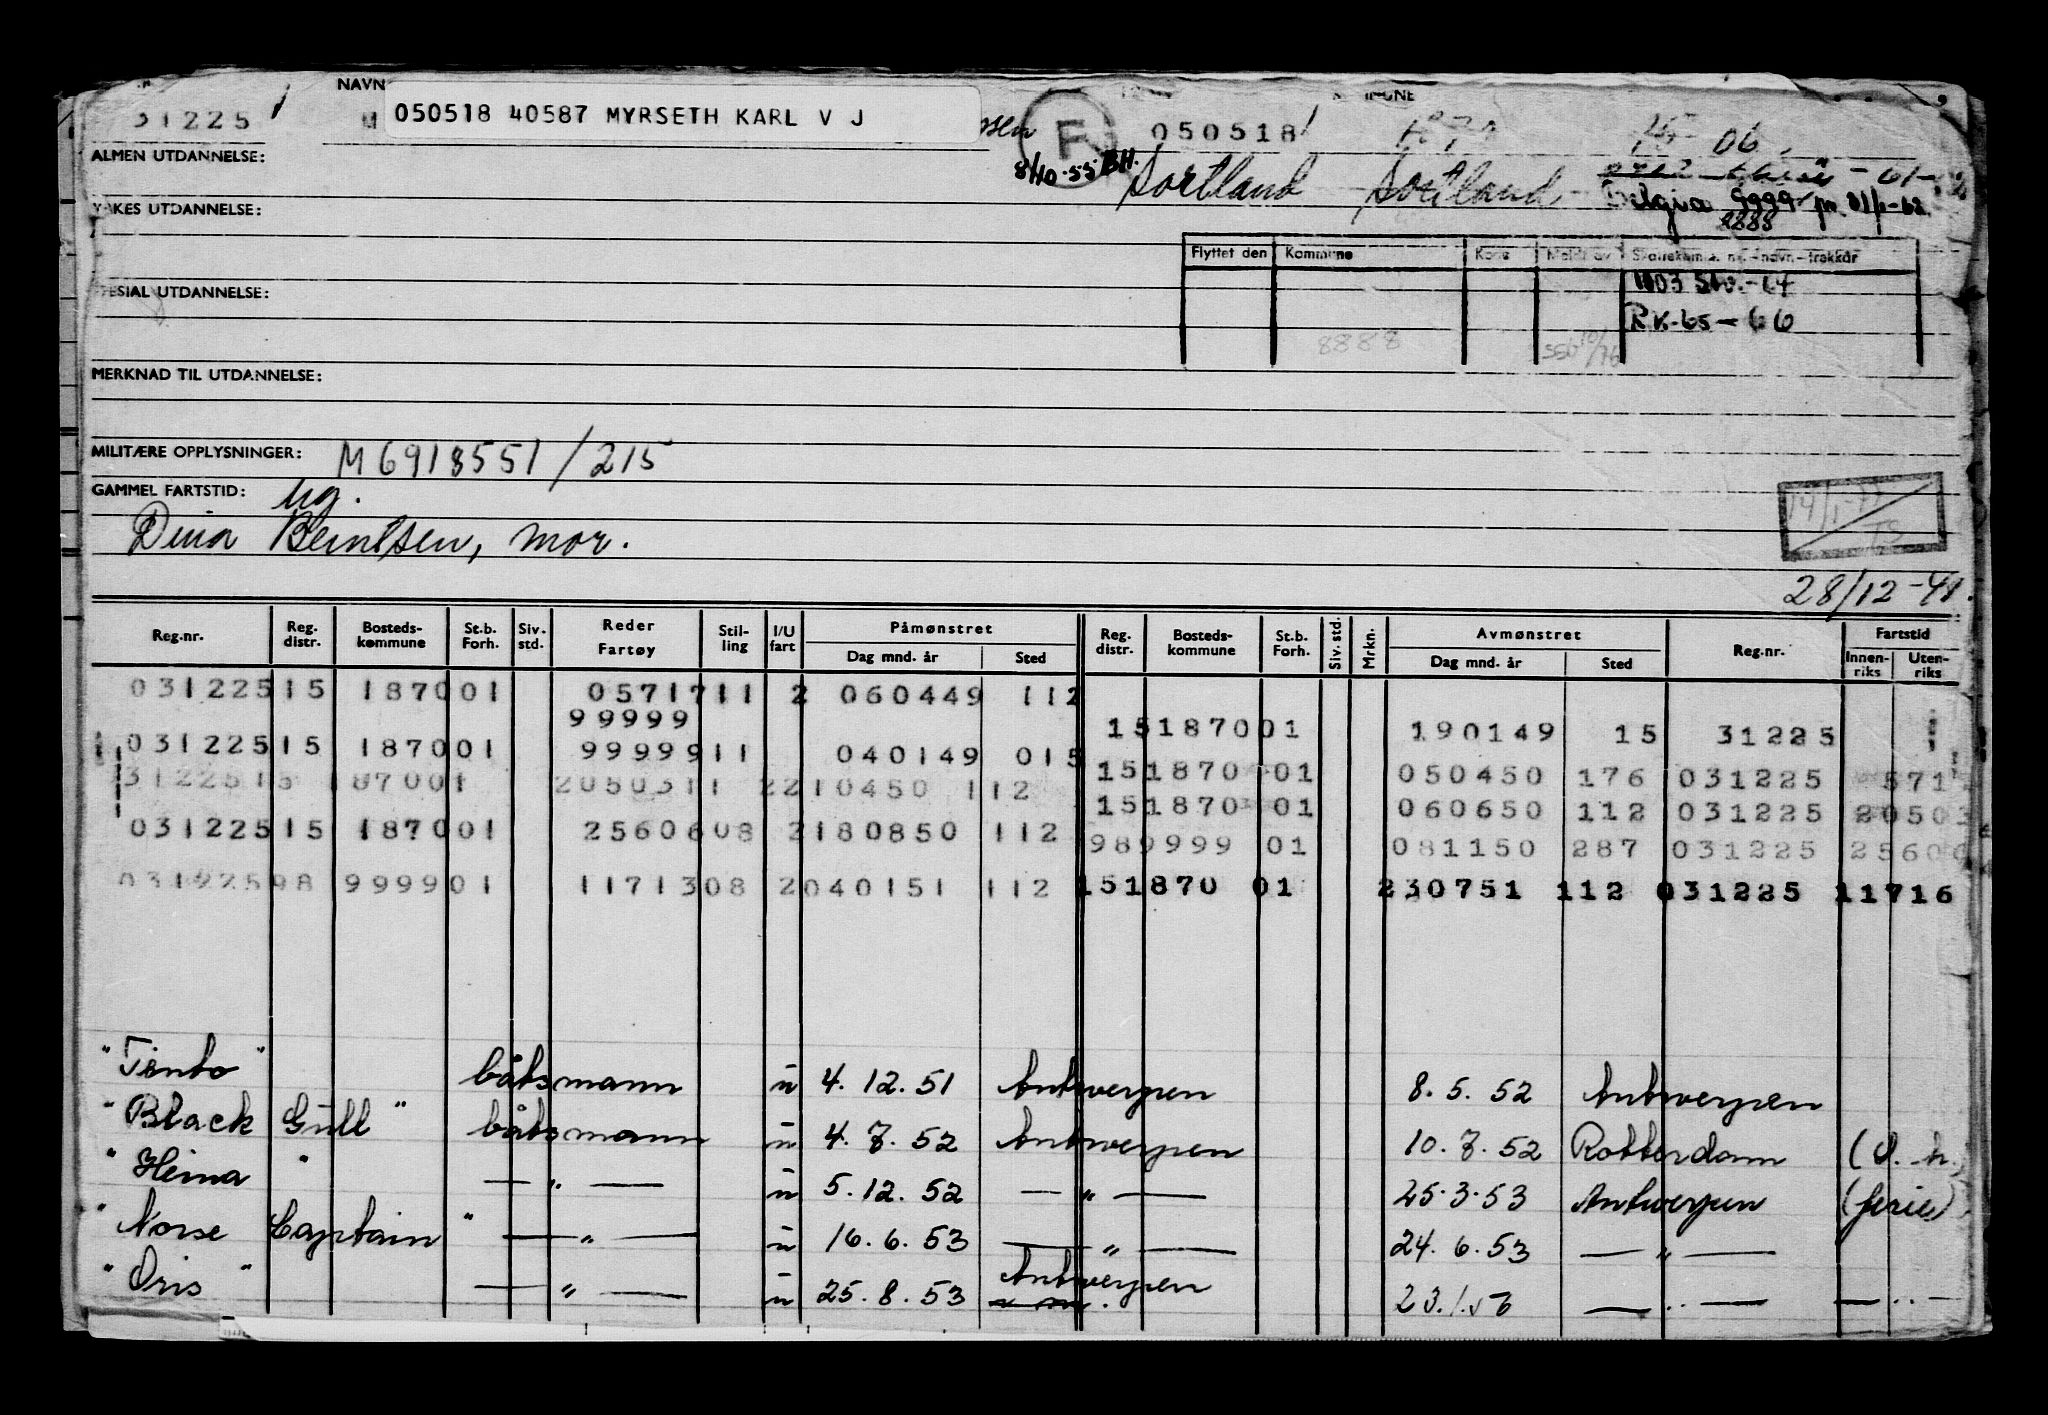 NAVN
31225
050518 40587 MYRSETH KARL V J
F
050518
06
ALMEN UTDANNELSE:
8/10-55 BH.
Sortland Sortland
Belgia 9999
8888
UTDANNELSE:
Flyttet den Kommune
SPESIAL UTDANNELSE:
RK-65-66
8888
MERKNAD TIL UTDANNELSE:
MILITÆRE OPPLYSNINGER: M 6918551/215
GAMMEL FARTSTID: ug.
Dina Berntsen, mor.
28/12-41.
Reg.nr. Reg. distr. Bosteds-kommune St.b. Forh. Siv. std. Reder Fartøy Stil-ling I/U fart Påmønstret Dag mnd. år Sted Reg. distr. Bosteds-kommune St.b. Forh. Siv. std. Mrkn. Avmønstret Dag mnd. år Sted Reg.nr. Fartstid Innen-riks Uten-riks
031225 15 1870 01 05717 11 2 060449 112
99999
15 1870 01 190149 15 31225
031225 15 1870 01 99999 11 040149 015
15 1870 01 050450 176 031225 571
31225 15 1870 01 20503 11 2 210450 112
15 1870 01 060650 112 031225 20503
031225 15 1870 01 25606 08 2 180850 112
98 9999 01 081150 287 031225 2560
031225 98 9999 01 11713 08 2 040151 112
15 1870 01 230751 112 031225 11716
"Tento" båtsmann u 4.12.51 Antwerpen 8.5.52 Antwerpen
"Black Gull" båtsmann u 4.7.52 Antwerpen 10.7.52 Rotterdam
"Heina" — " — u 5.12.52 — " — 25.3.53 Antwerpen (ferie)
"Norse Captain" — " — u 16.6.53 — " — 24.6.53 — " —
"Oris" — " — u 25.8.53 Antwerpen 23.1.56 — " — — " —